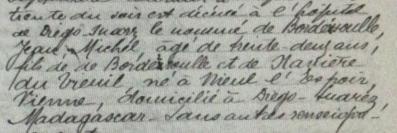 trente du soir est décédé à l'hôpital
de Diégo-Suarez le nommé de Bordesoulle,
Jean Michel, âgé de trente-deux ans,
fils de de Bordesoulle et de
du Vreuil né à Vieul l'Espoir
Vienne, domicilié à Diego-Suarez,
Madagascar. Sans autres renseigne-